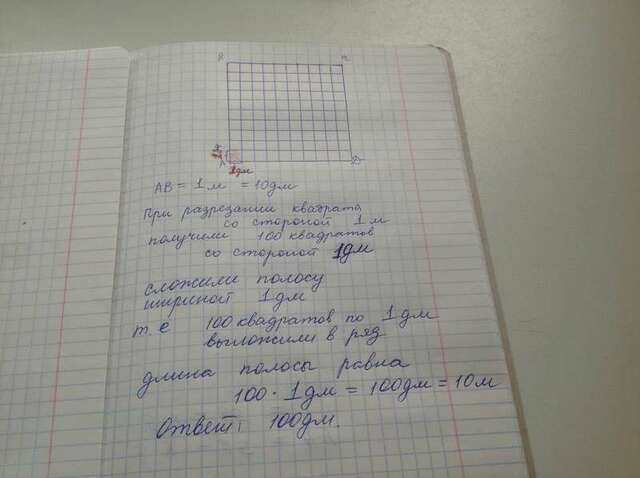 B M
1дм
A 1дм D
AB = 1м = 10дм
При разрезании квадрата
со стороной 1м
получили 100 квадратов
со стороной 1дм
сложили полосу
шириной 1дм
т.е 100 квадратов по 1дм
выложили в ряд
длина полосы равна
100 · 1дм = 100дм = 10м
Ответ: 100дм.